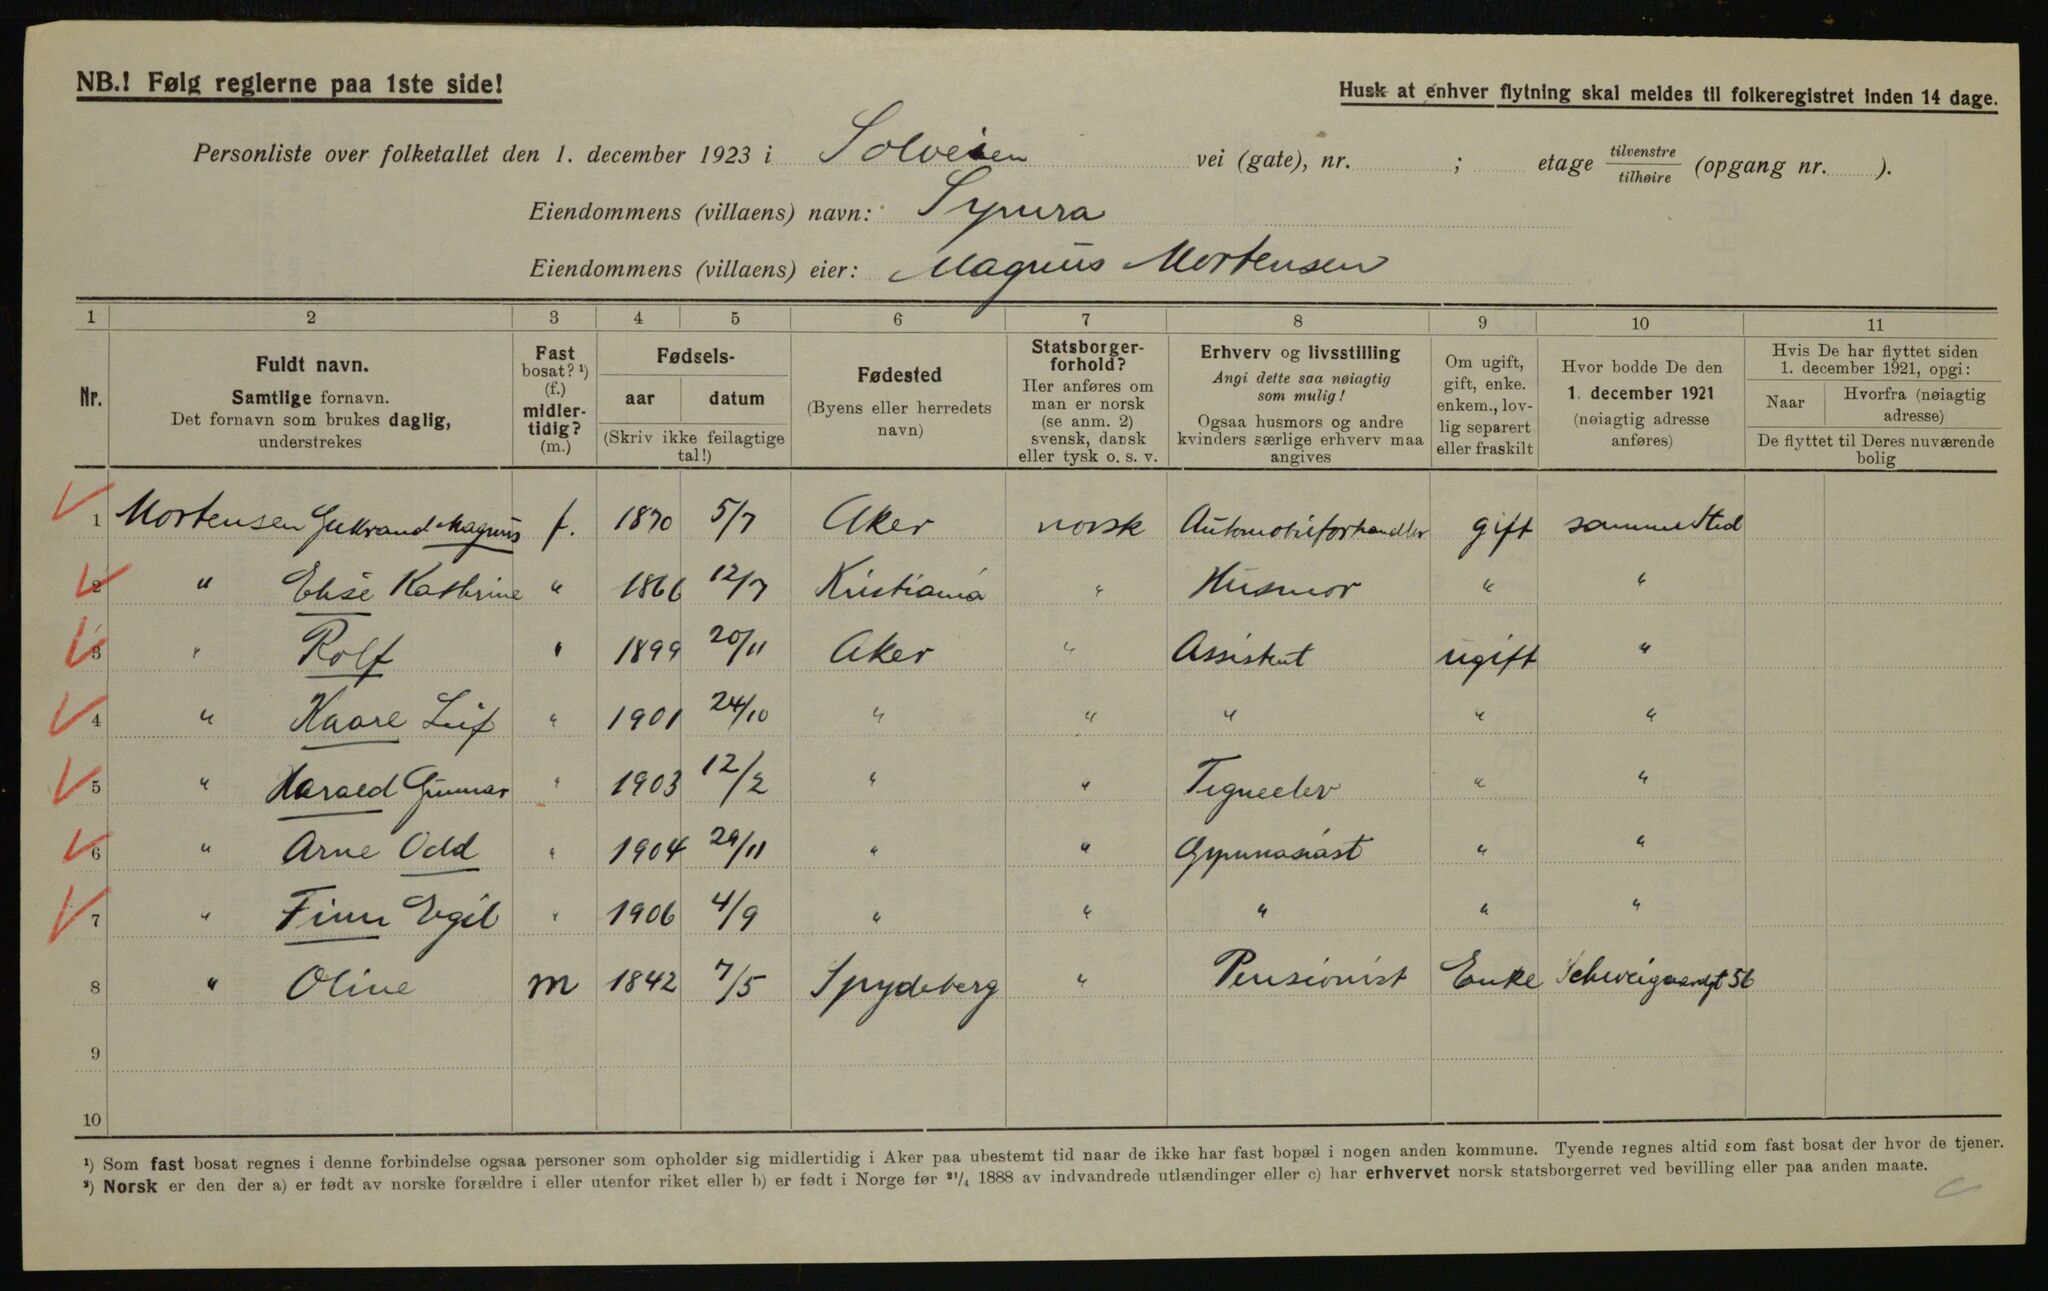 NB.! Følg reglerne paa 1ste side!
Husk at enhver flytning skal meldes til folkeregistret inden 14 dage.
Personliste over folketallet den 1. december 1923 i Solveien vei (gate), nr. ; etage tilvenstre/tilhøire (opgang nr. ).
Eiendommens (villaens) navn: Syvura
Eiendommens (villaens) eier: Magnus Mortensen
1 2 3 4 5 6 7 8 9 10 11
Nr.
Fuldt navn.
Samtlige fornavn.
Det fornavn som brukes daglig,
understrekes
Fast
bosat? ¹)
(f.)
midler-
tidig?
(m.)
Fødsels-
aar datum
(Skriv ikke feilagtige
tal!)
Fødested
(Byens eller herredets
navn)
Statsborger-
forhold?
Her anføres om
man er norsk
(se anm. 2)
svensk, dansk
eller tysk o. s. v.
Erhverv og livsstilling
Angi dette saa nøiagtig
som mulig!
Ogsaa husmors og andre
kvinders særlige erhverv maa
angives
Om ugift,
gift, enke.
enkem., lov-
lig separert
eller fraskilt
Hvor bodde De den
1. december 1921
(nøiagtig adresse
anføres)
Hvis De har flyttet siden
1. december 1921, opgi:
Naar Hvorfra (nøiagtig
adresse)
De flyttet til Deres nuværende
bolig
1 Mortensen Gulbrand Magnus f. 1870 5/7 Aker norsk Automobilforhandler gift sammested
2 " Elise Kathrine " 1866 12/7 Kristiania " Husmor " "
3 " Rolf " 1899 20/11 Aker " Assistent ugift "
4 " Kaare Leif " 1901 24/10 " " " " "
5 " Harald Gunnar " 1903 12/2 " " Tegneelev " "
6 " Arne Odd " 1904 29/11 " " Gymnasiast " "
7 " Finn Egil " 1906 4/9 " " " " "
8 " Oline m 1842 7/5 Spydeberg " Pensionist Enke Schweigaardsgt 56
9
10
¹) Som fast bosat regnes i denne forbindelse ogsaa personer som opholder sig midlertidig i Aker paa ubestemt tid naar de ikke har fast bopæl i nogen anden kommune. Tyende regnes altid som fast bosat der hvor de tjener.
²) Norsk er den der a) er født av norske forældre i eller utenfor riket eller b) er født i Norge før ²¹/₄ 1888 av indvandrede utlændinger eller c) har erhvervet norsk statsborgerret ved bevilling eller paa anden maate.